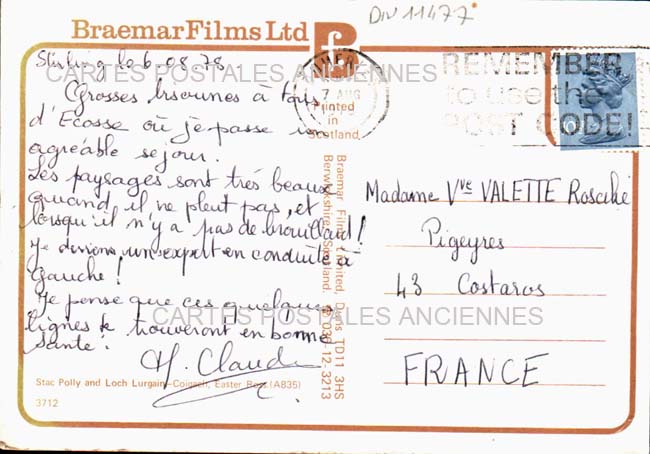 DIV 11477
Braemar Films Ltd
Stirling le 6.08.78
CARTES POSTALES ANCIENNES
Grosses bisounes à tous
d'Ecosse où je passe un
agréable séjour.
Les paysages sont très beaux
quand il ne pleut pas, et
lorsqu'il n'y a pas de brouillard !
Je deviens un expert en conduite à
gauche !
Je pense que ces quelques
lignes te trouveront en bonne
santé.
M. Claude
CARTES POSTALES ANCIENNES
Stac Polly and Loch Lurgain—Coigach, Easter Ross (A835)
3712
Printed
in
Scotland
Braemar Films Limited, Duns TD11 3HS
Berwickshire, Scotland. 036-12-3213
7 AUG
REMEMBER
to use the
POST CODE!
Madame Vve VALETTE
Pigeyres
43 Costaros
FRANCE